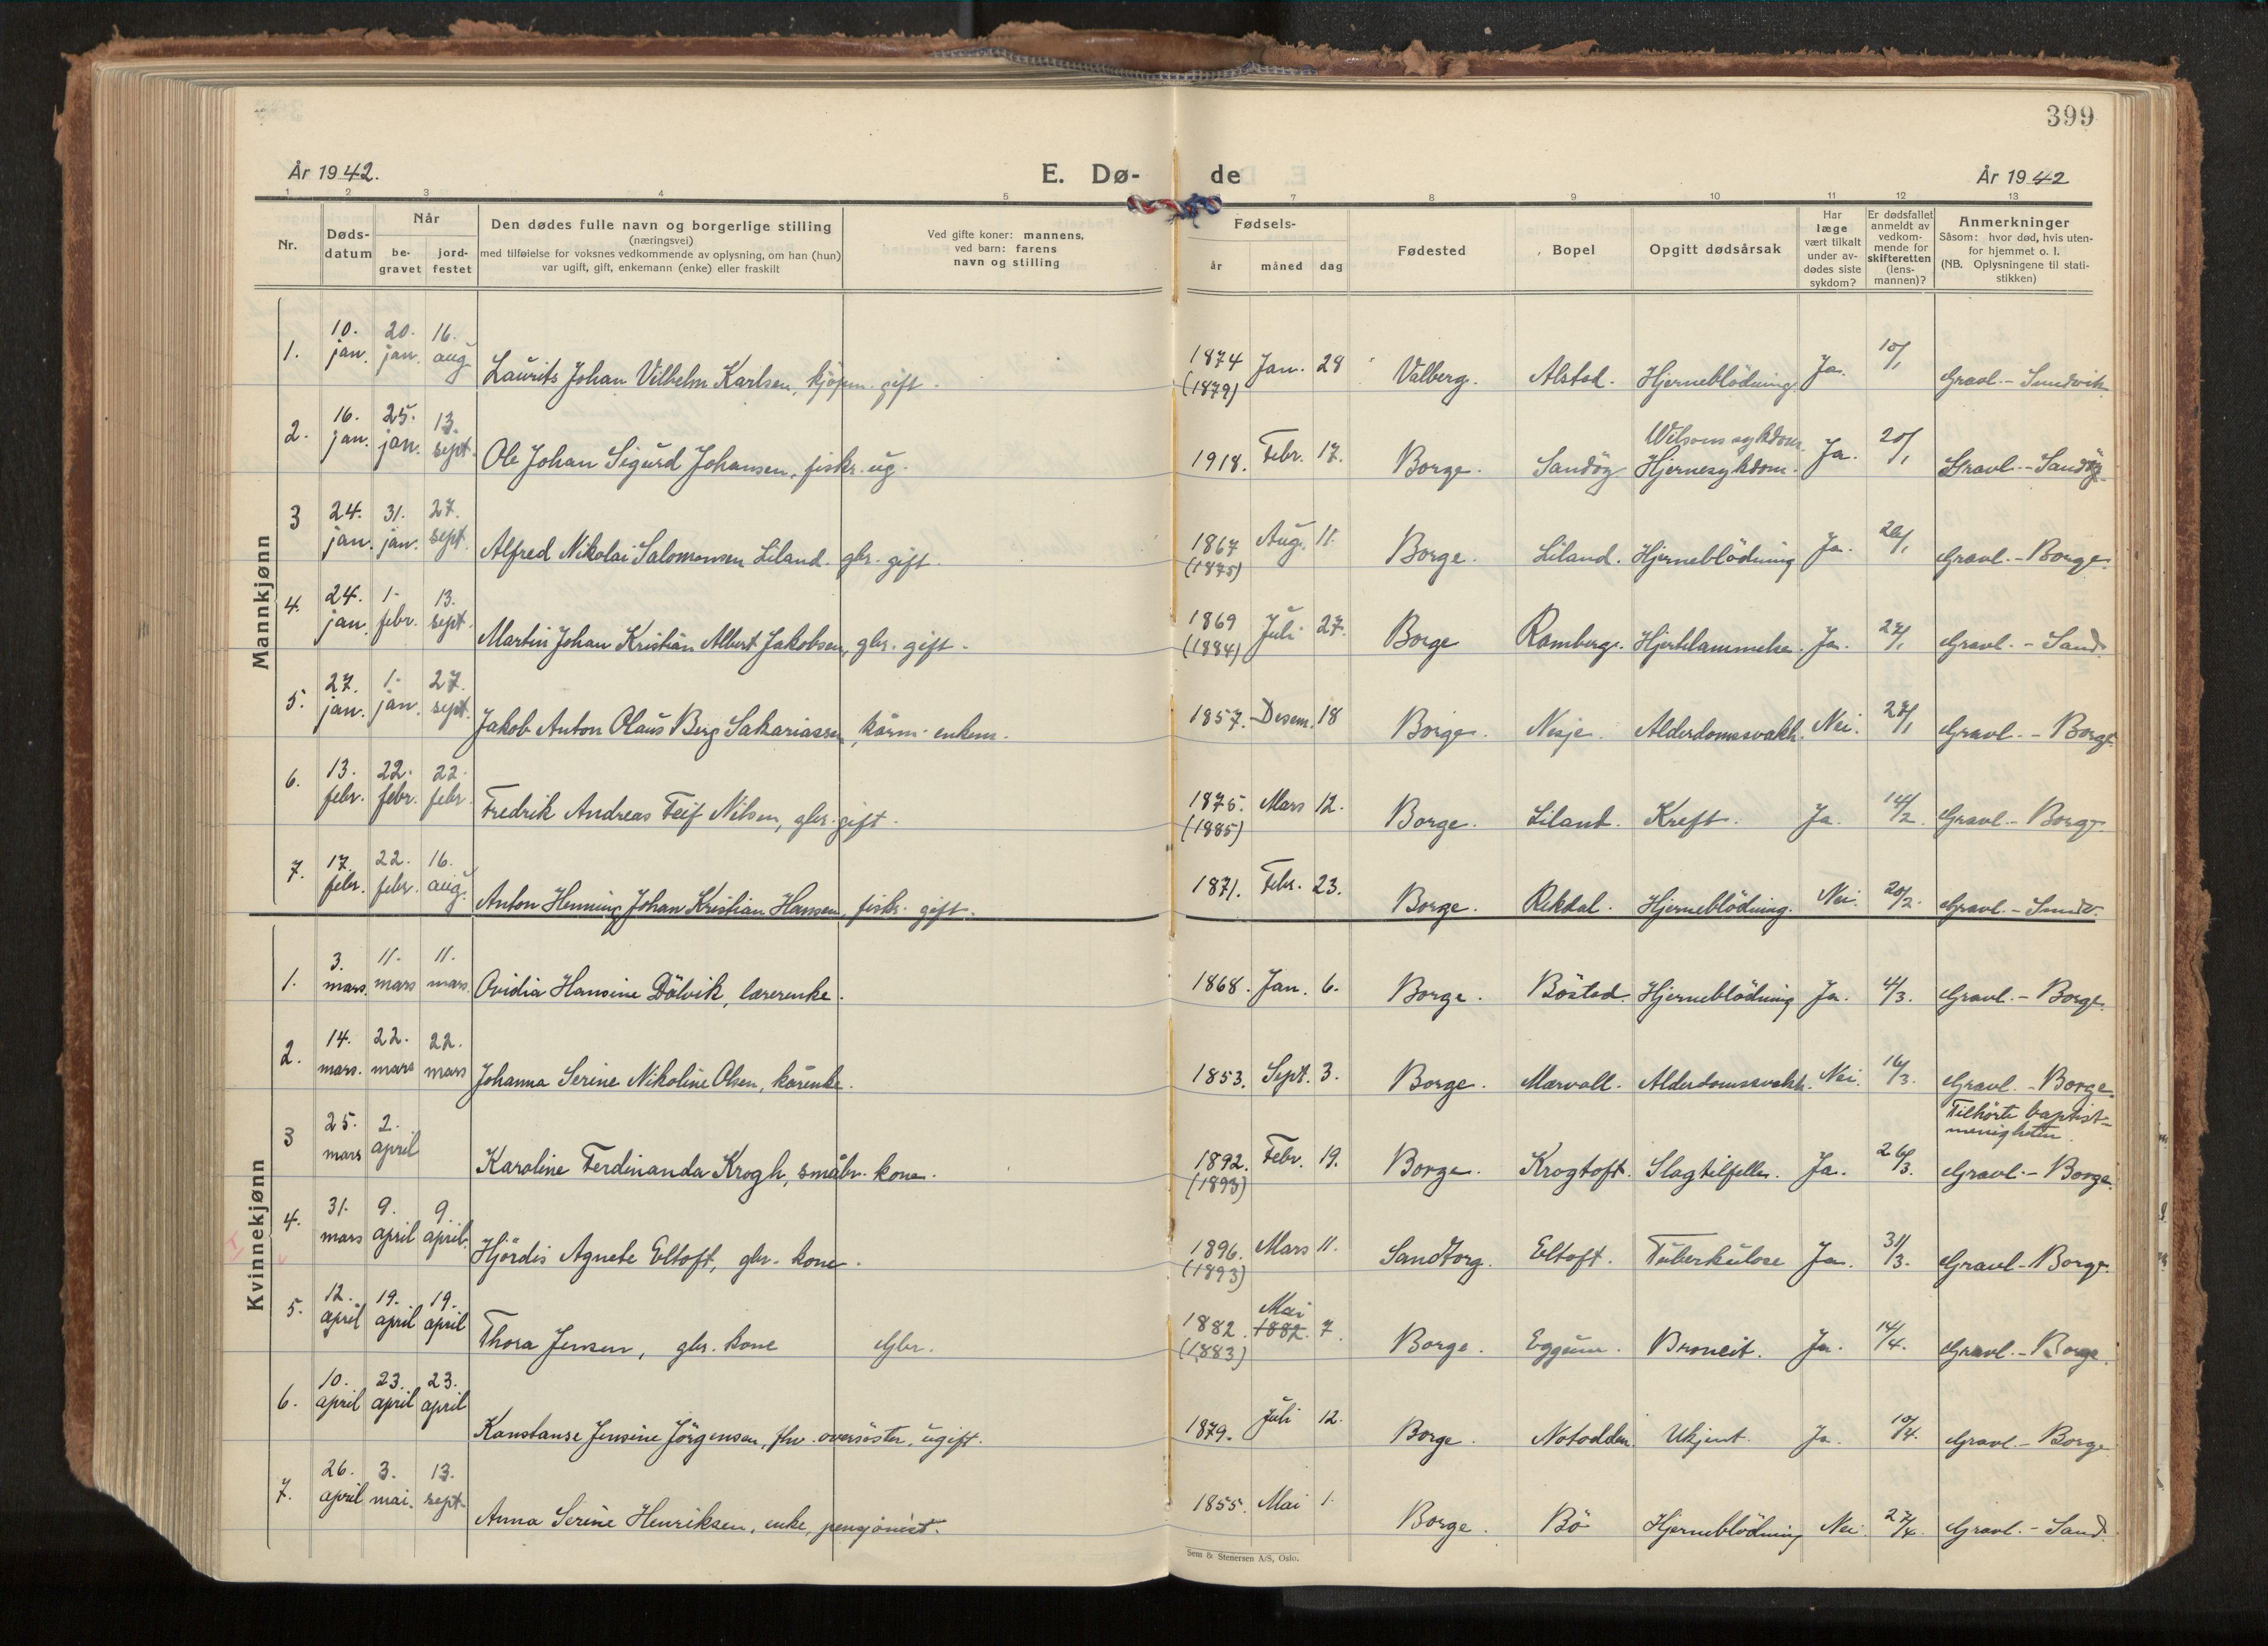 399
År 1942.
E. Dø-
de
År 1942
1 2 3 4 5 7 8 9 10 11 12 13
Nr.
Døds-
datum
Når
be-
gravet
jord-
festet
Den dødes fulle navn og borgerlige stilling
(næringsvei)
med tilføielse for voksnes vedkommende av oplysning, om han (hun)
var ugift, gift, enkemann (enke) eller fraskilt
Ved gifte koner: mannens,
ved barn: farens
navn og stilling
Fødsels-
år måned dag
Fødested
Bopel
Opgitt dødsårsak
Har
læge
vært tilkalt
under av-
dødes siste
sykdom?
Er dødsfallet
anmeldt av
vedkom-
mende for
skifteretten
(lens-
mannen)?
Anmerkninger
Såsom: hvor død, hvis uten-
for hjemmet o. l.
(NB. Oplysningene til stati-
stikken)
Mannkjønn
1. 10. jan. 20. jan. 16. aug. Laurits Johan Vilhelm Karlsen, kjøpm. gift. 1874 (1879) Jan. 28 Valberg. Alstad. Hjerneblödning. Ja. 10/1 Gravl. - Sundvik
2. 16. jan. 25. jan. 13. sept. Ole Johan Sigurd Johansen, fisk. ug. 1918. Febr. 17. Borge. Sandöy Wilsons sykdom. Hjernesykdom. Ja. 20/1 Gravl. - Sandöy
3 24. jan. 31. jan. 27. sept. Alfred Nikolai Salomonsen Liland. gbr. gift. 1867 (1875) Aug. 11. Borge. Liland. Hjerneblödning Ja. 26/1 Gravl. - Borge.
4. 24. jan. 1. febr. 13. sept. Martin Johan Kristian Albert Jakobsen, gbr. gift. 1869 (1884) Juli 27. Borge Ramberg. Hjertelammelse. Ja. 27/1 Gravl. - Sand.
5. 27. jan. 1. jan. 27. sept. Jakob Anton Olaus Berg Sakariassen, kårm. enkem. 1857. Desem. 18 Borge. Nesje. Alderdomssvakh. Nei. 28/1 Gravl. - Borge
6. 13. febr. 22. febr. 22. febr. Fredrik Andreas Feif Nilsen, gbr. gift. 1875. (1885) Mars 12. Borge. Liland. Kreft. Ja. 14/2 Gravl. - Borge.
7. 17. febr. 22. febr. 16. aug. Anton Henning Johan Kristian Hansen, fisk. gift. 1871. Febr. 23. Borge. Rekdal. Hjerneblödning. Nei. 20/2. Gravl. - Sundv.
Kvinnekjønn
1. 3. mars. 11. mars 11. mars. Ovidia Hansine Dålvik, lærerenke. 1868. Jan. 6. Borge. Böstad. Hjerneblödning Ja. 4/3. Gravl. - Borge.
2. 14. mars. 22. mars 22. mars Johanna Serine Nikoline Olsen, kårenke. 1853. Sept. 3. Borge. Mærvoll. Alderdomssvakh. Nei. 16/3. Gravl. - Borge.
3 25. mars 2. april Karoline Ferdinanda Krogh, småbr. kone. 1892. (1893) Febr. 19. Borge. Krogtoft. Slagtilfelle. Ja. 26/3. Tilhörte baptist-
menigheten. Gravl. - Borge.
4. 31. mars 9. april 9. april. Hjördis Agnete Eltoft, gbr. kone. 1896. (1893) Mars 11. Sandtorg. Eltoft. Tuberkulose Ja. 31/3. Gravl - Borge.
5. 12. april 19. april 19. april Thora Jensen, gbr. kone Gbr. 1882. (1883) Mai 1882. 7. Borge. Eggum. Broncit. Ja. 14/4. Gravl. - Borge.
6. 10. april 23. april 23. april Konstanse Jensine Jörgensen, fhv. oversöster, ugift. 1879. Juli 12. Borge. Notodden. Ukjent. Ja. 10/4. Gravl. - Borge
7. 26. april 3. mai. 13. sept. Anna Serine Henriksen, enke, pensjonist. 1855. Mai 1. Borge. Bö Hjerneblödning Nei. 27/4. Gravl. - Sand.
Sem & Stenersen A/S, Oslo.